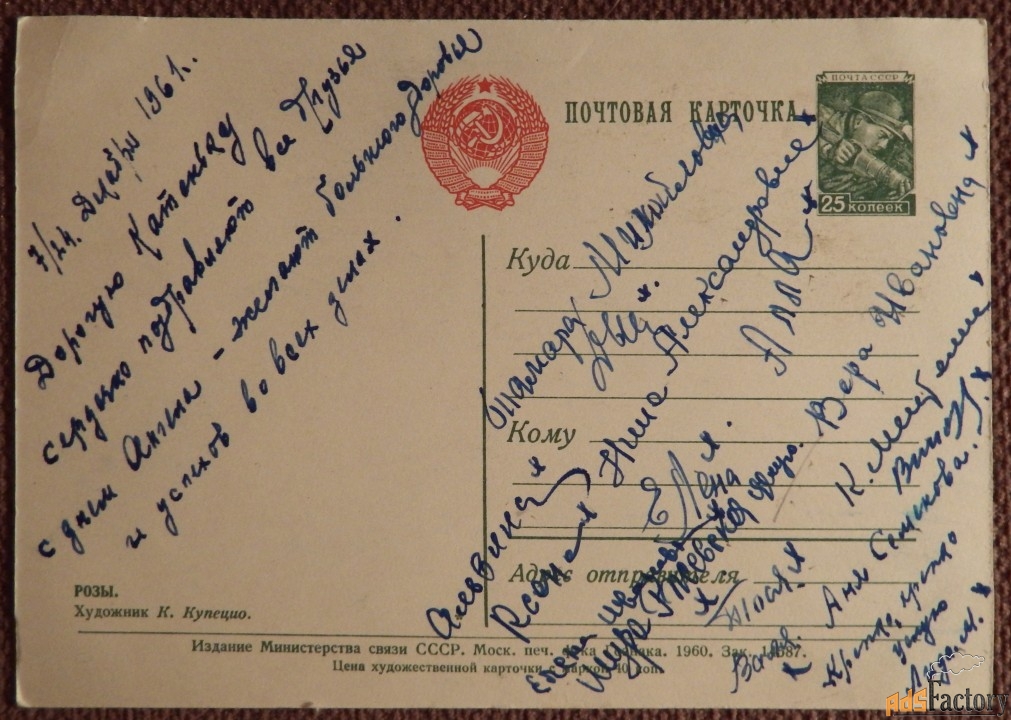 7/24 Декабря 1961.
Дорогую Катеньку
сердечно поздравляют все друзья
с днем Ангела - желают большого здоровья
и успехов во всех делах.
ПОЧТОВАЯ КАРТОЧКА
ПОЧТА СССР
25 КОПЕЕК
Куда
Кому
Адрес отправителя
Тамара Михайловна
Нина Александровна
Алла
Елена
Вера Ивановна
Алевтина
Ксения
К.
Аня Семенова.
Крепко, крепко
целую
РОЗЫ.
Художник К. Купецио.
Издание Министерства связи СССР. Моск. печ. ф-ка Гознака. 1960. Зак.
Цена художественной карточки с маркой 40 коп.
AdsFactory